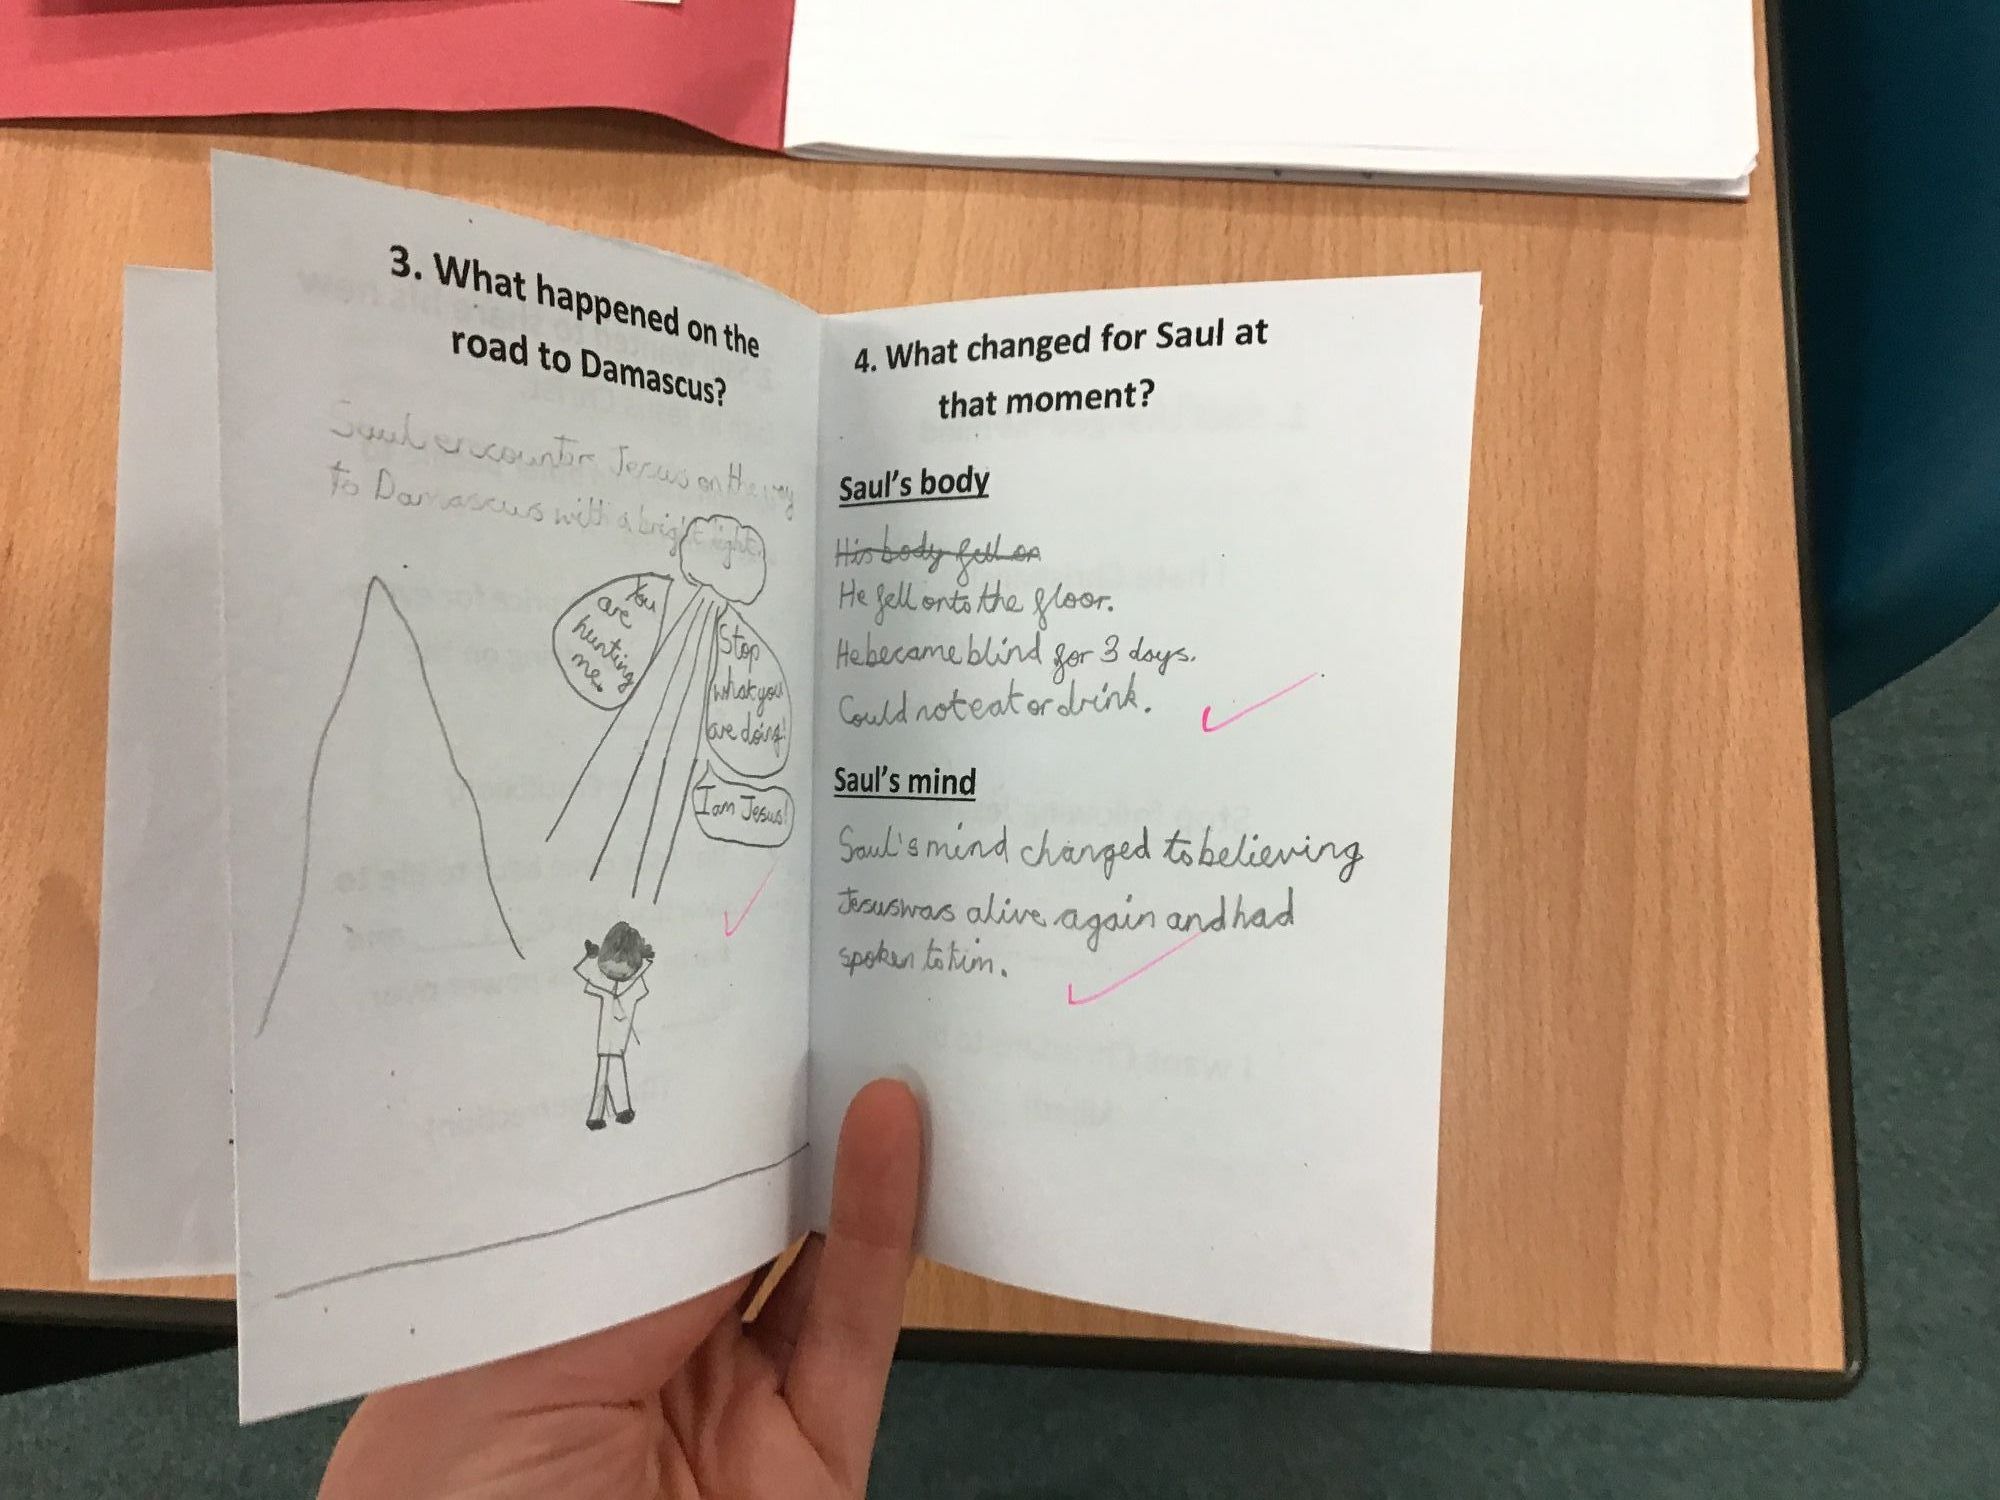 3. What happened on the
road to Damascus?
Saul encounter Jesus on the way
to Damascus with a bright light.
You
are
hunting
me.
Stop
what you
are doing!
I am Jesus!
4. What changed for Saul at
that moment?
Saul's body
His body fell on
He fell onto the floor.
He became blind for 3 days.
Could not eat or drink.
Saul's mind
Saul's mind changed to believing
Jesus was alive again and had
spoken to him.